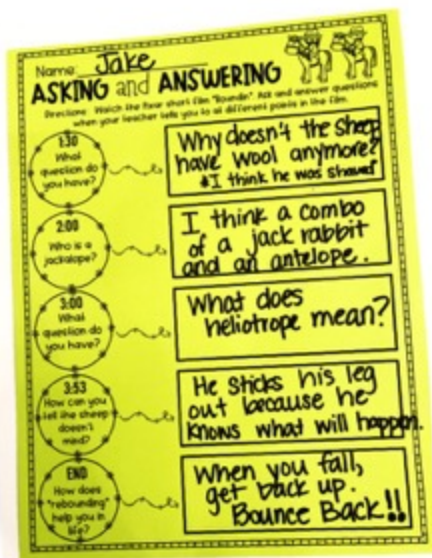 Name: Jake
ASKING and ANSWERING
Directions: Watch the Pixar short film "Boundin". Ask and answer questions
when your teacher tells you to at different points in the film.
1:30
What
question do
you have?
Why doesn't the sheep
have wool anymore?
*I think he was shaved
2:00
Who is a
jackalope?
I think a combo
of a jack rabbit
and an antelope.
3:00
What
question do
you have?
What does
heliotrope mean?
3:53
How can you
tell the sheep
doesn't
mind?
He sticks his leg
out because he
knows what will happen.
END
How does
"rebounding"
help you in
life?
When you fall,
get back up.
Bounce Back!!